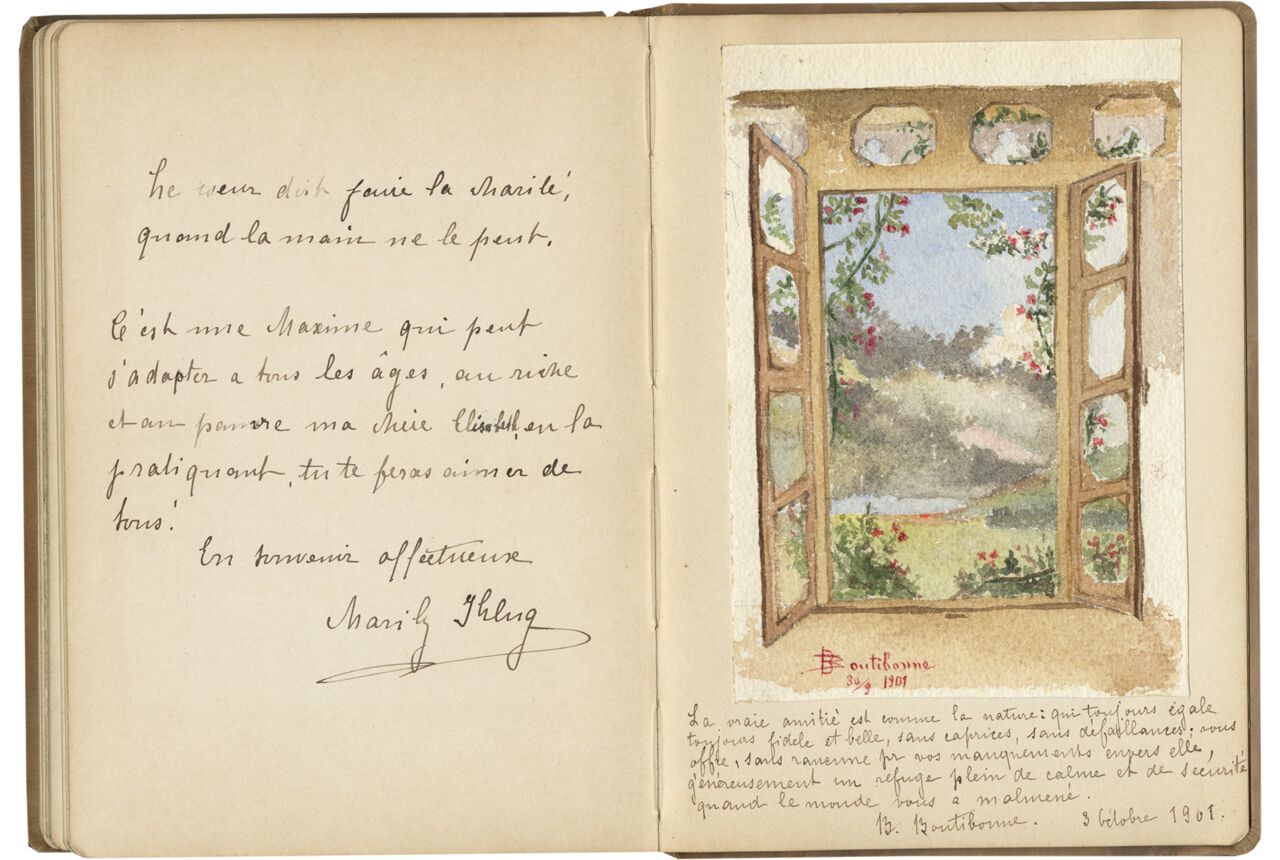 Le cœur doit faire la charité,
quand la main ne le peut.
C'est une Maxime qui peut
s'adapter a tous les âges, au riche
et au pauvre ma chère Elisabeth, en la
pratiquant, tu te feras aimer de
tous!
En souvenir affectueux
Marily
Boutibonne
30/9 1901
La vraie amitié est comme la nature: qui toujours égale
toujours fidele et belle, sans caprices, sans défaillances; vous
offre, sans rancune pr vos manquements envers elle,
généreusement un refuge plein de calme et de sécurité
quand le monde vous a malmené.
B. Boutibonne. 3 Octobre 1901.